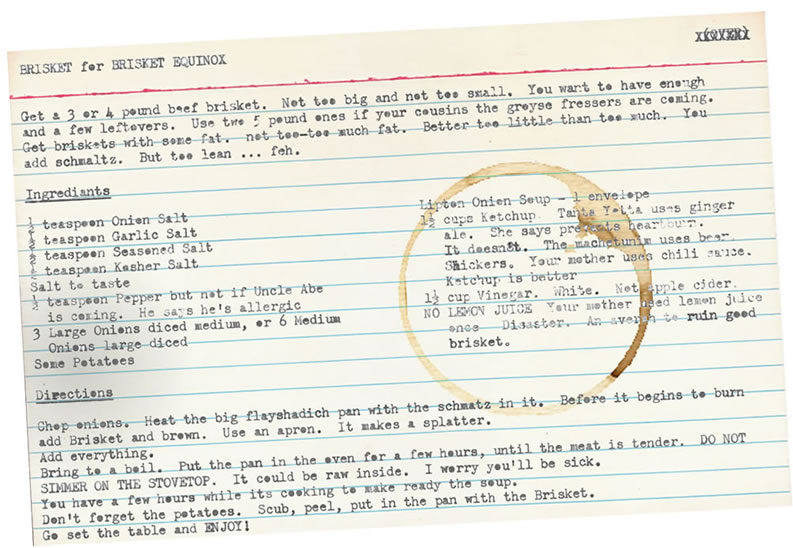 (OVER)
BRISKET for BRISKET EQUINOX
Get a 3 or 4 pound beef brisket. Not too big and not too small. You want to have enough
and a few leftovers. Use two 5 pound ones if your cousins the groyse fressers are coming.
Get briskets with some fat. not too-too much fat. Better too little than too much. You
add schmaltz. But too lean ... feh.
Ingrediants
½ teaspoon Onion Salt
½ teaspoon Garlic Salt
½ teaspoon Seasoned Salt
½ teaspoon Kosher Salt
Salt to taste
½ teaspoon Pepper but not if Uncle Abe
is coming. He says he's allergic
3 Large Onions diced medium, or 6 Medium
Onions large diced
Some Potatoes
Lipton Onion Soup - 1 envelope
1½ cups Ketchup. Tanta Yetta uses ginger
ale. She says prevents heartburn.
It doesn8t. The machetunim uses beer
Shickers. Your mother uses chili sauce.
Ketchup is better
1½ cup Vinegar. White. Not apple cider.
NO LEMON JUICE Your mother used lemon juice
once Disaster. An averah to ruin good
brisket.
Directions
Chop onions. Heat the big flayshadich pan with the schmatz in it. Before it begins to burn
add Brisket and brown. Use an apron. It makes a splatter.
Add everything.
Bring to a boil. Put the pan in the oven for a few hours, until the meat is tender. DO NOT
SIMMER ON THE STOVETOP. It could be raw inside. I worry you'll be sick.
You have a few hours while its cooking to make ready the soup.
Don't forget the potatoes. Scub, peel, put in the pan with the Brisket.
Go set the table and ENJOY!